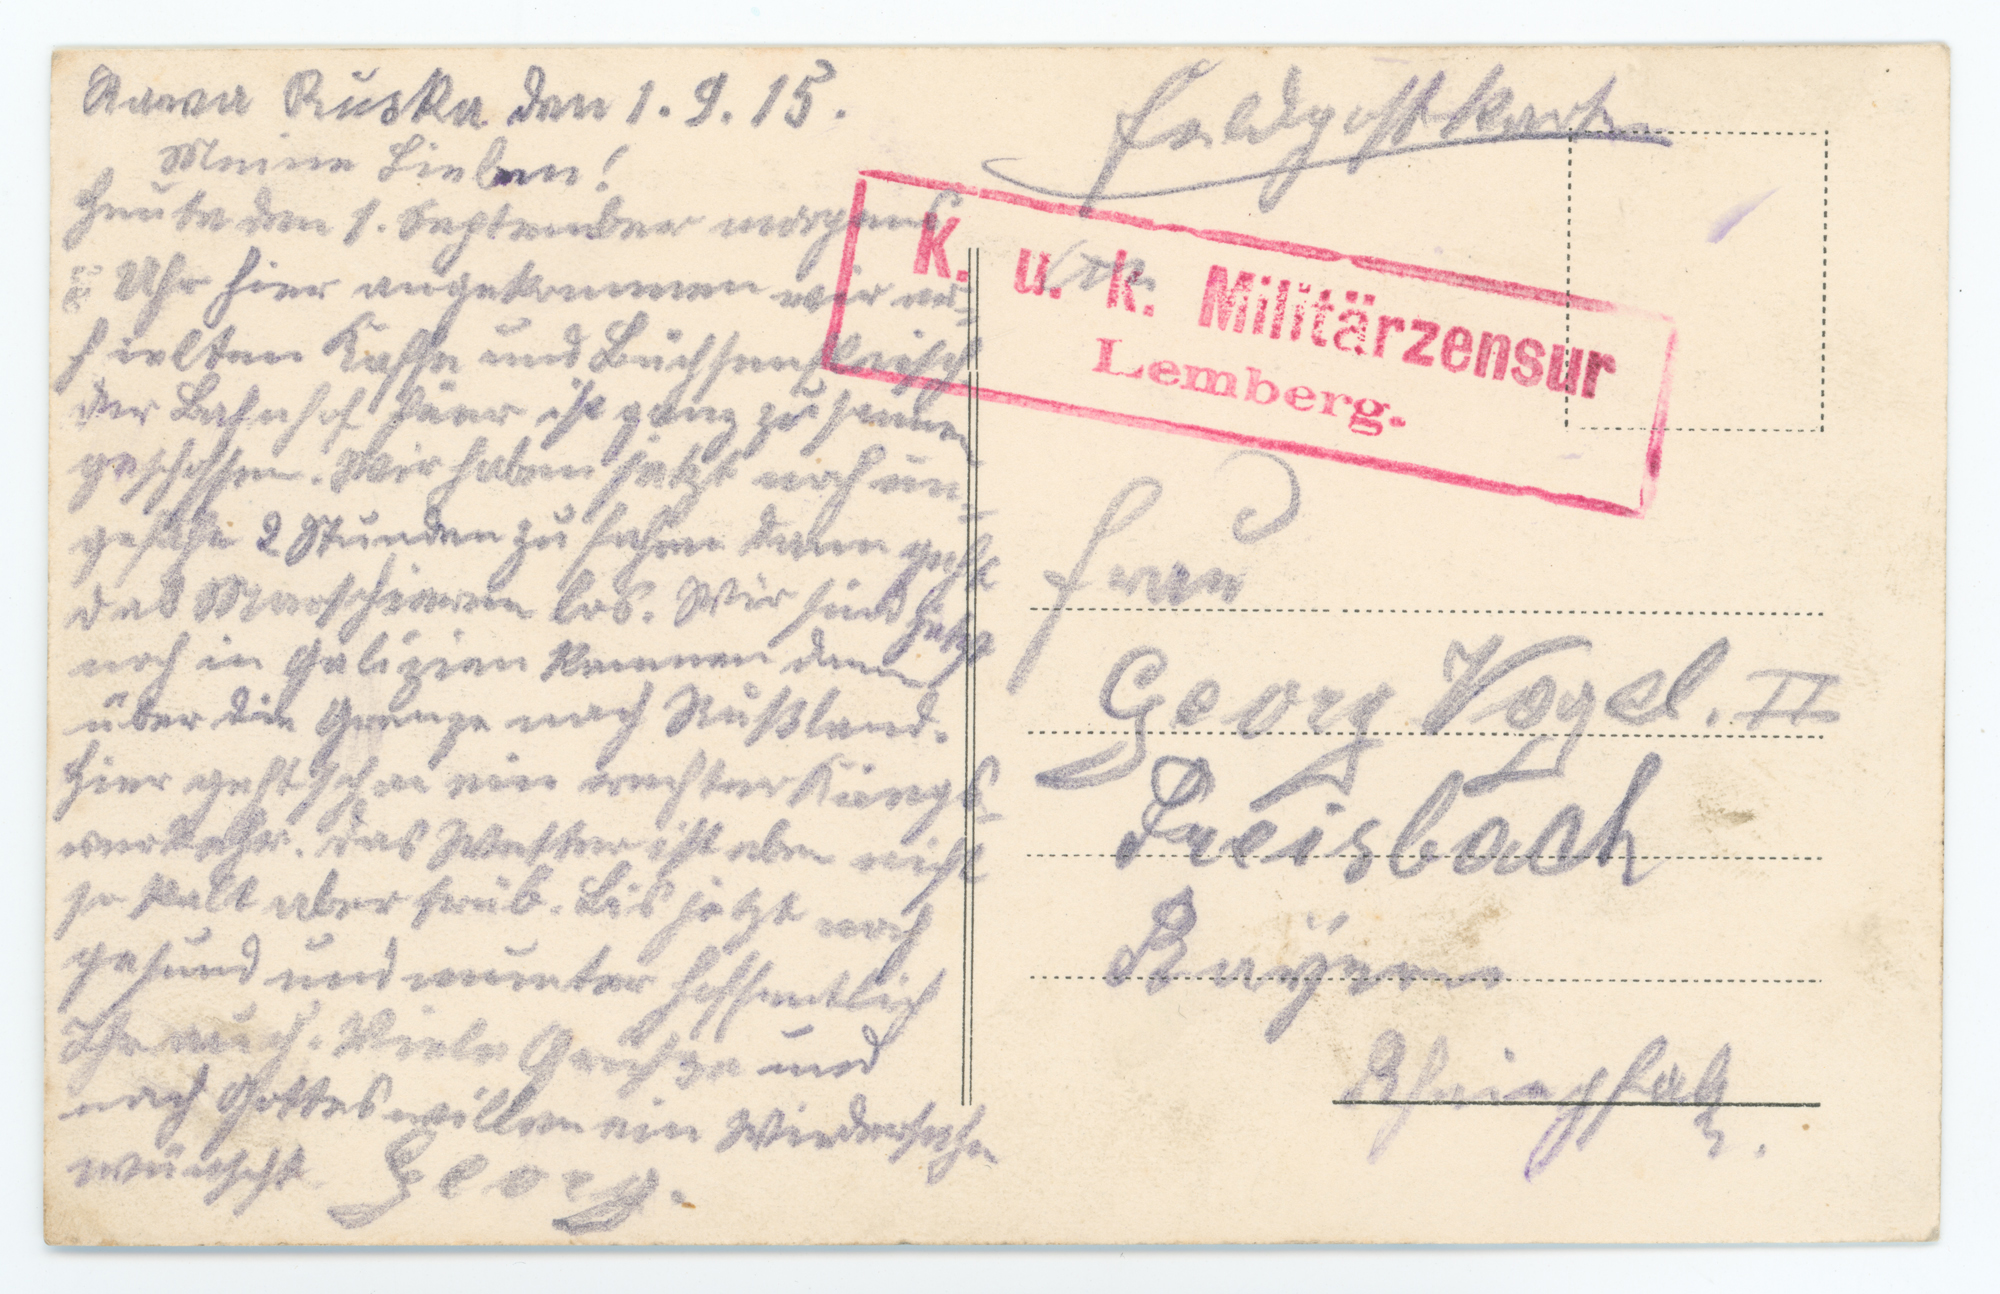 Rawa Ruska den 1. 9. 15.
Meine Lieben!
Heute den 1. September morgens
Uhr hier angekommen wir er-
hielten Kaffe und Büchsenfleisch
der Bahnhof hier ist ganz zusamen
geschossen. Wir haben jetzt noch un-
gefähr 2 Stunden zu fahren dann geht
das Marschieren los. Wir sind jetzt
noch in Galizien kommen dann
über die Grenze nach Rußland.
Hier geht schon ein rechter Kriegs
verkehr. Das Wetter ist eben nicht
so kalt aber trüb. Bis jetzt noch
gesund und munter hoffentlich
Ihr auch. Viele Grüße und
nach Gottes willen ein Wiedersehn
wünscht Georg.
Feldpostkarte
K. u. k. Militärzensur
Lemberg.
Frau
Georg Vogel. II
Freisbach
Bayern
Rheinpfalz.